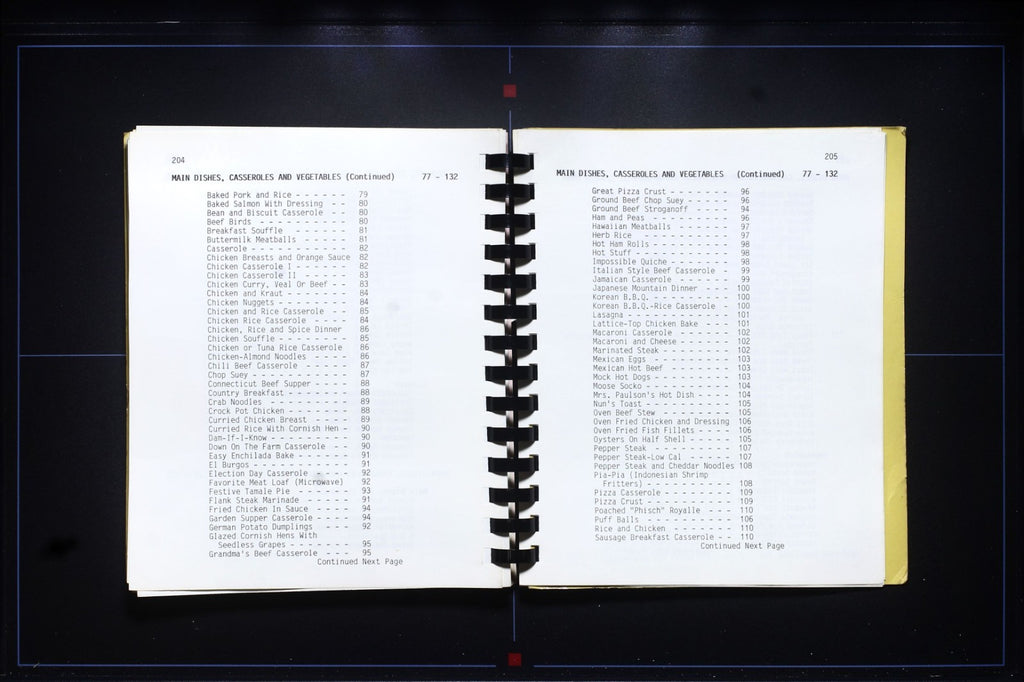 204
MAIN DISHES, CASSEROLES AND VEGETABLES (Continued) 77 - 132
Baked Pork and Rice - - - - - - 79
Baked Salmon With Dressing - - 80
Bean and Biscuit Casserole - - 80
Beef Birds - - - - - - - - - - 80
Breakfast Souffle - - - - - - 81
Buttermilk Meatballs - - - - - 81
Casserole - - - - - - - - - - - 82
Chicken Breasts and Orange Sauce 82
Chicken Casserole I - - - - - - 82
Chicken Casserole II - - - - - 83
Chicken Curry, Veal Or Beef - - 83
Chicken and Kraut - - - - - - - 84
Chicken Nuggets - - - - - - - - 84
Chicken and Rice Casserole - - 85
Chicken Rice Casserole - - - - 84
Chicken, Rice and Spice Dinner 86
Chicken Souffle - - - - - - - - 85
Chicken or Tuna Rice Casserole 86
Chicken-Almond Noodles - - - - 86
Chili Beef Casserole - - - - - 87
Chop Suey - - - - - - - - - - - 87
Connecticut Beef Supper - - - - 88
Country Breakfast - - - - - - - 88
Crab Noodles - - - - - - - - - 89
Crock Pot Chicken - - - - - - - 88
Curried Chicken Breast - - - - 89
Curried Rice With Cornish Hen - 90
Dam-If-I-Know - - - - - - - - - 90
Down On The Farm Casserole - - 90
Easy Enchilada Bake - - - - - - 91
El Burgos - - - - - - - - - - - 91
Election Day Casserole - - - - 92
Favorite Meat Loaf (Microwave) 92
Festive Tamale Pie - - - - - - 93
Flank Steak Marinade - - - - - 91
Fried Chicken In Sauce - - - - 94
Garden Supper Casserole - - - - 94
German Potato Dumplings - - - - 92
Glazed Cornish Hens With
Seedless Grapes - - - - - - - 95
Grandma's Beef Casserole - - - 95
Continued Next Page
205
MAIN DISHES, CASSEROLES AND VEGETABLES (Continued) 77 - 132
Great Pizza Crust - - - - - - - 96
Ground Beef Chop Suey - - - - - 96
Ground Beef Stroganoff - - - - 94
Ham and Peas - - - - - - - - - 96
Hawaiian Meatballs - - - - - - 97
Herb Rice - - - - - - - - - - - 97
Hot Ham Rolls - - - - - - - - - 98
Hot Stuff - - - - - - - - - - - 98
Impossible Quiche - - - - - - - 98
Italian Style Beef Casserole - 99
Jamaican Casserole - - - - - - 99
Japanese Mountain Dinner - - - 100
Korean B.B.Q. - - - - - - - - - 100
Korean B.B.Q.-Rice Casserole - 100
Lasagna - - - - - - - - - - - - 101
Lattice-Top Chicken Bake - - - 101
Macaroni Casserole - - - - - - 102
Macaroni and Cheese - - - - - - 102
Marinated Steak - - - - - - - - 102
Mexican Eggs - - - - - - - - - 103
Mexican Hot Beef - - - - - - - 103
Mock Hot Dogs - - - - - - - - - 103
Moose Socko - - - - - - - - - - 104
Mrs. Paulson's Hot Dish - - - - 104
Nun's Toast - - - - - - - - - - 105
Oven Beef Stew - - - - - - - - 105
Oven Fried Chicken and Dressing 106
Oven Fried Fish Fillets - - - - 106
Oysters On Half Shell - - - - - 105
Pepper Steak - - - - - - - - - 107
Pepper Steak-Low Cal - - - - - 107
Pepper Steak and Cheddar Noodles 108
Pia-Pia (Indonesian Shrimp
Fritters) - - - - - - - - - - 108
Pizza Casserole - - - - - - - - 109
Pizza Crust - - - - - - - - - - 109
Poached "Phisch" Royalle - - - 110
Puff Balls - - - - - - - - - - 106
Rice and Chicken - - - - - - - 110
Sausage Breakfast Casserole - - 110
Continued Next Page